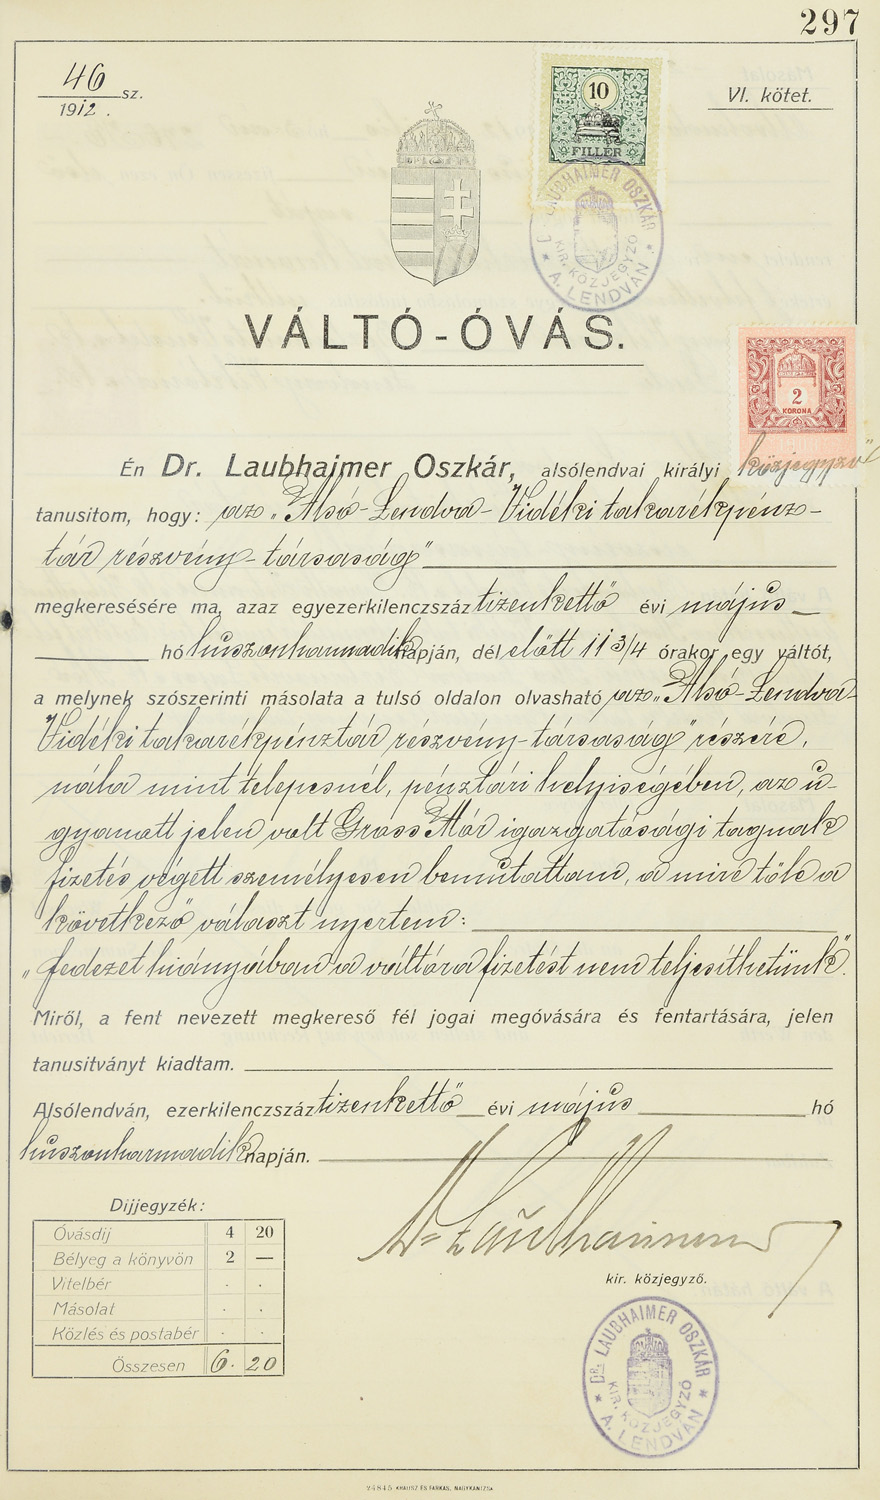 297
46 sz.
1912.
VI. kötet.
10
FILLÉR
DR. LAUBHAIMER OSZKÁR
KIR. KÖZJEGYZŐ
A. LENDVÁN
VÁLTÓ-ÓVÁS.
2
KORONA
Én Dr. Laubhaimer Oszkár, alsólendvai királyi közjegyző
tanusitom, hogy: az „Alsó-Lendva-Vidéki takarékpénz-
tár részvény-társaság"
megkeresésére ma, azaz egyezerkilenczszáz tizenkettő évi május
hó huszonharmadik napján, dél előtt 11 3/4 órakor egy váltót,
a melynek szószerinti másolata a tulsó oldalon olvasható az „Alsó-Lendva-
Vidéki takarékpénztár részvény-társaság" részére,
nála mint telepesnél, pénztári helyiségében, az u-
gyanott jelen volt Mór igazgatósági tagnak
fizetés végett személyesen bemutattam, a mire tőle a
következő választ nyertem:
„fedezet hiányában a váltóra fizetést nem teljesíthetünk".
Miről, a fent nevezett megkereső fél jogai megóvására és fentartására, jelen
tanusitványt kiadtam.
Alsólendván, ezerkilenczszáz tizenkettő évi május hó
huszonharmadik napján.
Dijjegyzék:
Óvásdij 4 20
Bélyeg a könyvön 2 —
Vitelbér . .
Másolat . .
Közlés és postabér . .
Összesen 6. 20
Dr Laubhaimer
kir. közjegyző.
DR. LAUBHAIMER OSZKÁR
KIR. KÖZJEGYZŐ
A. LENDVÁN
24845 KRAUSZ ÉS FARKAS, NAGYKANIZSA